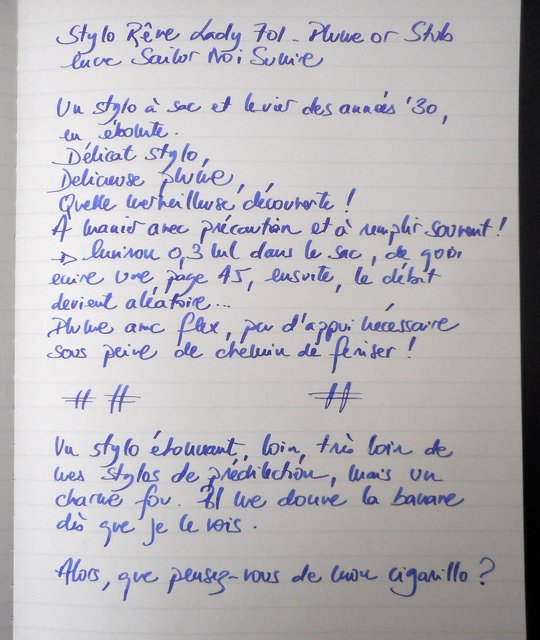 Stylo Rêve Lady 701 - Plume or Stub
Encre Sailor Noi Sumire
Un stylo à sac et levier des années '30,
en ébonite.
Délicat stylo,
Délicieuse plume,
Quelle merveilleuse découverte !
A manier avec précaution et à remplir souvent !
→ Environ 0,3 ml dans le sac, de quoi
écrire une page A5, ensuite, le débit
devient aléatoire...
Plume avec flex, peu d'appui nécessaire
sous peine de chemin de fer
Un stylo étonnant, loin, très loin de
mes stylos de prédilection, mais un
charme fou. Il me donne la banane
dès que je le vois.
Alors, que pensez-vous de mon cigarillo ?